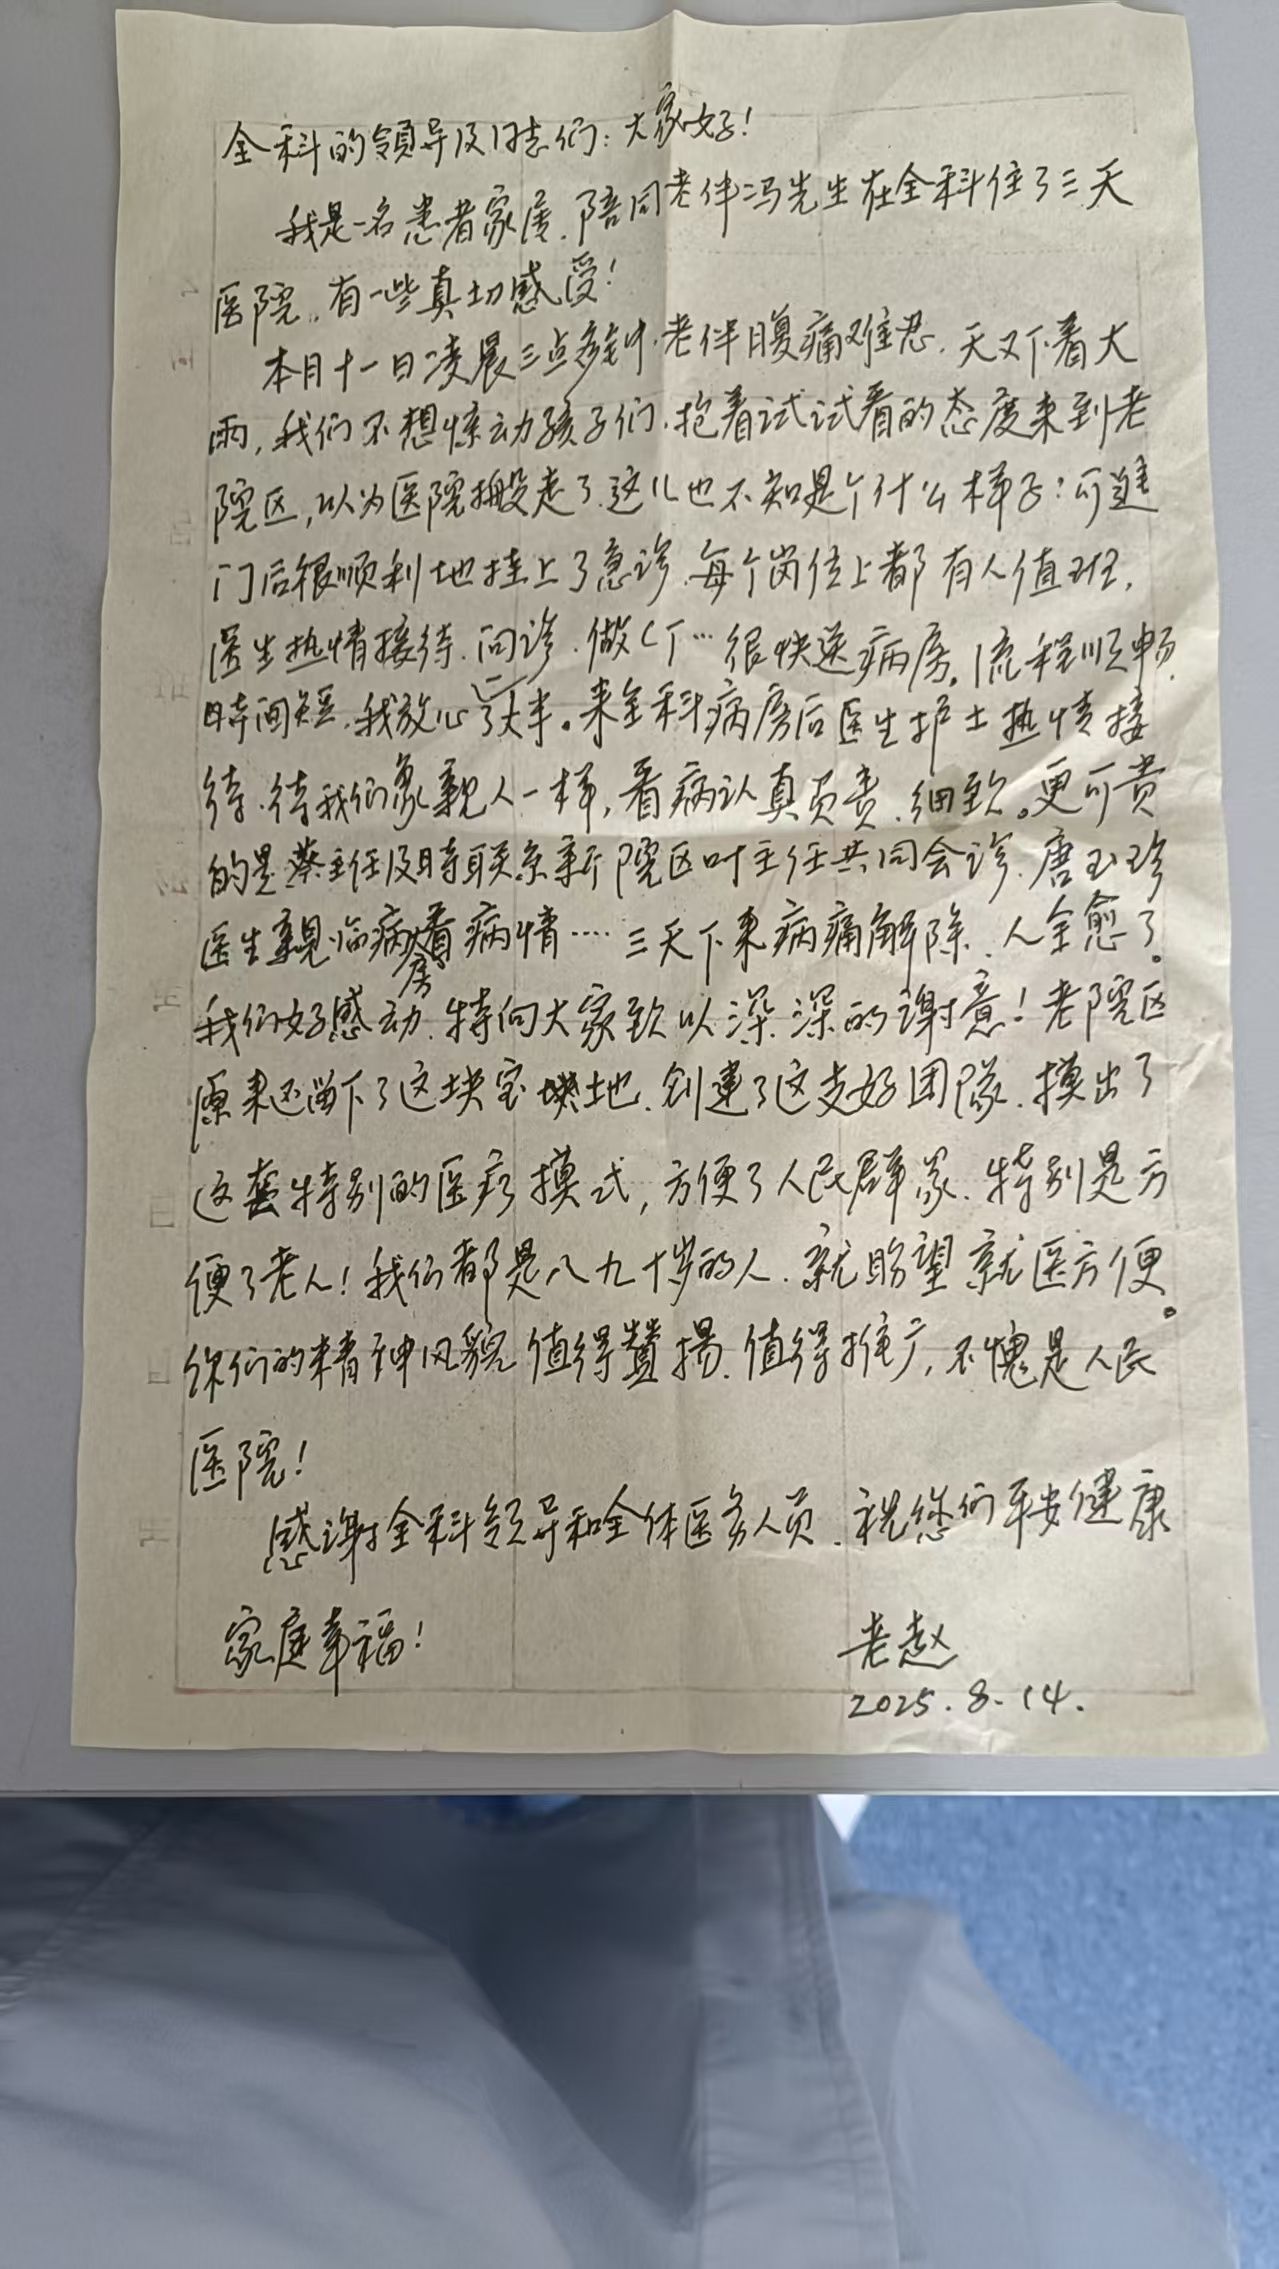 全科的领导及同志们：大家好！
我是一名患者家属，陪同老伴冯先生在全科住了三天
医院，有一些真切感受！
本月十一日凌晨三点多钟，老伴腹痛难忍，天又下着大
雨，我们不想惊动孩子们，抱着试试看的态度来到老
院区，以为医院搬走了，这儿也不知是个什么样子？可进
门后很顺利地挂上了急诊，每个岗位上都有人值班，
医生热情接待、问诊、做CT…很快送病房。流程顺畅，
时间短，我放心了一大半。来全科病房后医生护士热情接
待，待我们象親人一样，看病认真负责、细致。更可贵
的是蔡主任及时联系新院区叶主任共同会诊，唐玉珍
医生亲临病房看病情……三天下来病痛解除，人全愈了。
我们好感动，特向大家致以深深的谢意！老院区
原来还留下了这块宝地，创建了这支好团队，摸出了
这套特别的医疗模式，方便了人民群众，特别是方
便了老人！我们都是八九十岁的人，就盼望就医方便。
你们的精神风貌值得赞扬，值得推广，不愧是人民
医院！
感谢全科领导和全体医务人员，祝您们平安健康
家庭幸福！
老赵
2025.8.14.